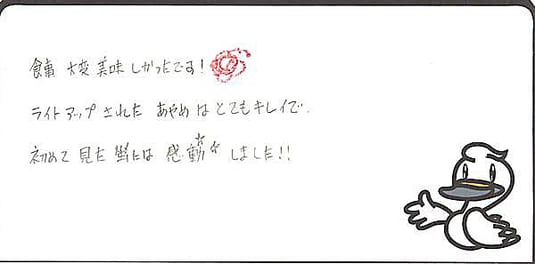 食事 大変美味しかったです!
ライトアップされた あやめ はとてもキレイで、
初めて見た 蛍には 感動 しました!!